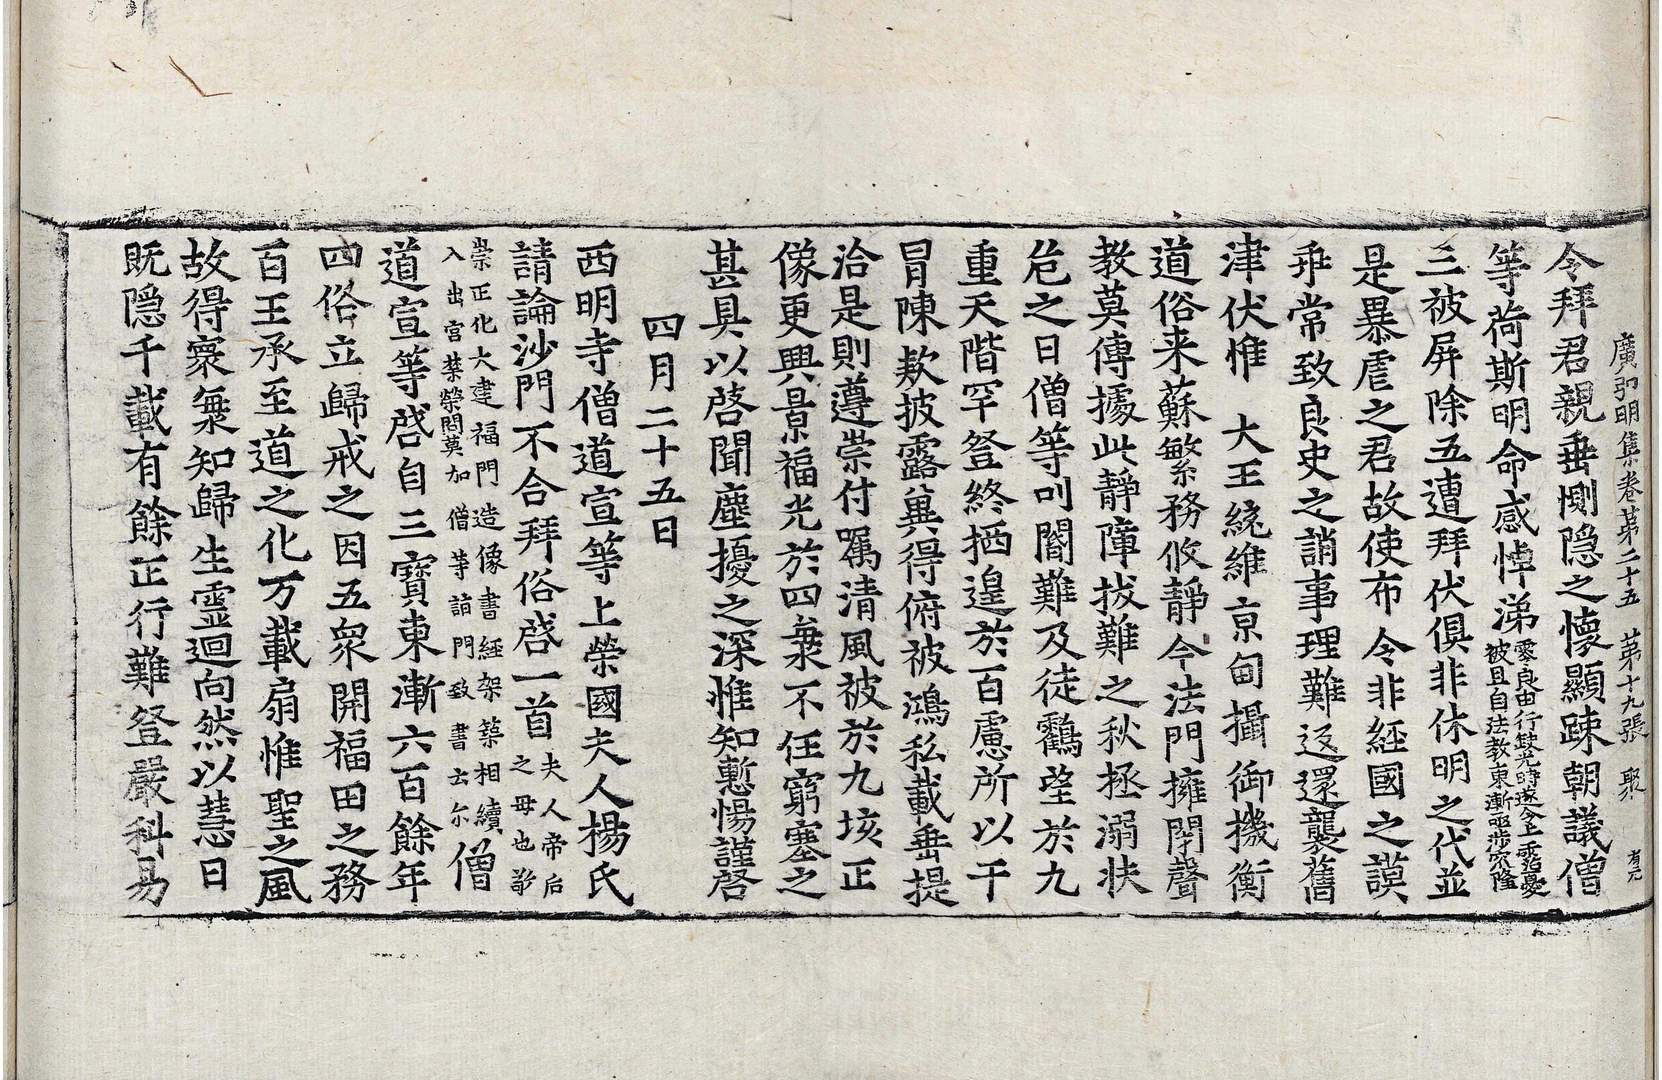 廣弘明集卷苐二十五　苐十九張　聚
令拜君親垂惻隐之懷顯踈朝議僧
等荷斯明命感悼涕零良由行缺光時遂令上乖菭憂
被且自法教東漸亟涉窊隆
三被屏除五遭拜伏俱非休明之代並
是暴虐之君故使布令非經國之謨
乖常致良史之誚事理難返還襲舊
津伏惟　大王統維京甸攝御機衡
道俗来蘇繁務攸靜今法門擁閇聲
教莫傳據此靜障拔難之秋拯溺扶
危之日僧等叫閽難及徒鶴望於九
重天階罕登終栖遑於百慮所以干
冒陳欵披露兾得俯被鴻私載垂提
洽是則遵崇付囑清風被於九垓正
像更興景福光於四衆不任窮塞之
甚具以啓聞塵擾之深惟知慙惕謹啓
四月二十五日
西明寺僧道宣等上榮國夫人楊氏
請論沙門不合拜俗啓一首夫人帝后
之母也敬
崇正化大建福門造像書經架築相續
入出宮禁榮問莫加僧等詣門致書云尓僧
道宣等啓自三寶東漸六百餘年
四俗立歸戒之因五衆開福田之務
百王承至道之化万載扇惟聖之風
故得寰㝢知歸生靈迴向然以慧日
旣隐千載有餘正行難登嚴科易